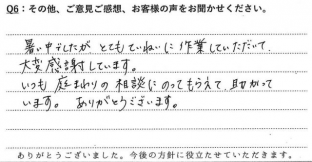 Q6：その他、ご意見ご感想、お客様の声をお聞かせください。
暑い中でしたが とてもていねいに 作業していただいて
大変感謝しています。
いつも 庭まわりの 相談に のってもらえて 助かって
います。 ありがとうございます。
ありがとうございました。今後の方針に役立たせていただきます。